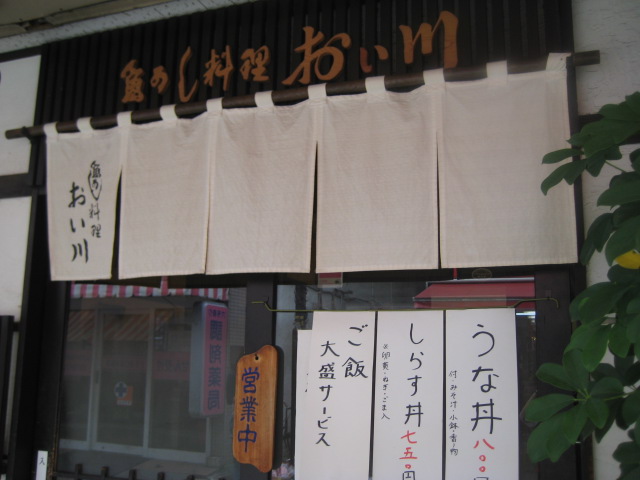 魚のし料理 おい川
魚のし料理
おい川
営業中
うな丼 八〇〇円
付・みそ汁・小鉢・香の物
しらす丼 七五〇円
※卵黄・ねぎ・ごま入
ご飯
大盛サービス
入